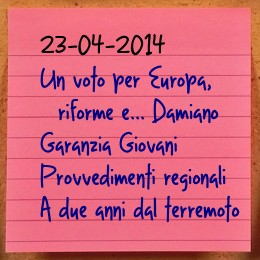 23-04-2014
Un voto per Europa,
riforme e... Damiano
Garanzia Giovani
Provvedimenti regionali
A due anni dal terremoto